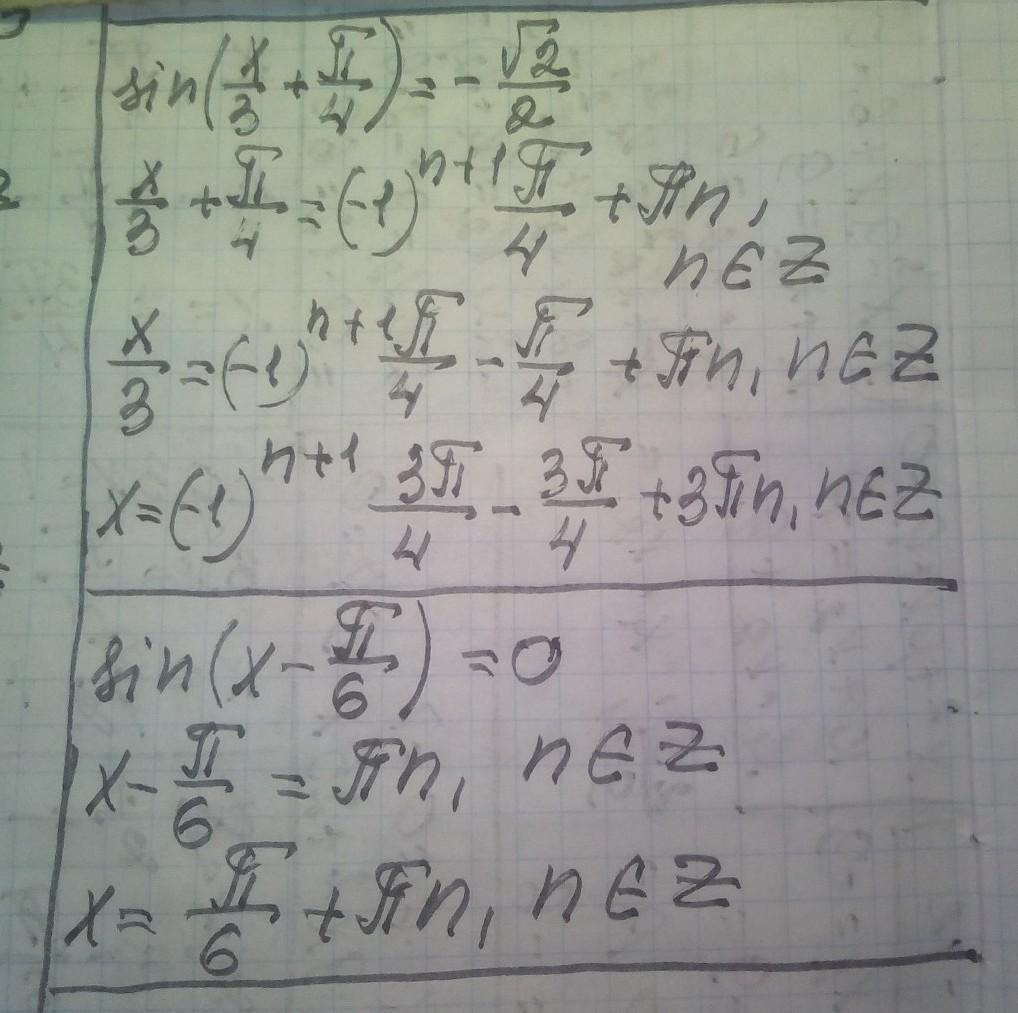 sin(x/3 + π/4) = - √2/2
x/3 + π/4 = (-1)^(n+1) π/4 + πn,
n ∈ Z
x/3 = (-1)^(n+1) π/4 - π/4 + πn, n ∈ Z
x = (-1)^(n+1) 3π/4 - 3π/4 + 3πn, n ∈ Z
sin(x - π/6) = 0
x - π/6 = πn, n ∈ Z
x = π/6 + πn, n ∈ Z